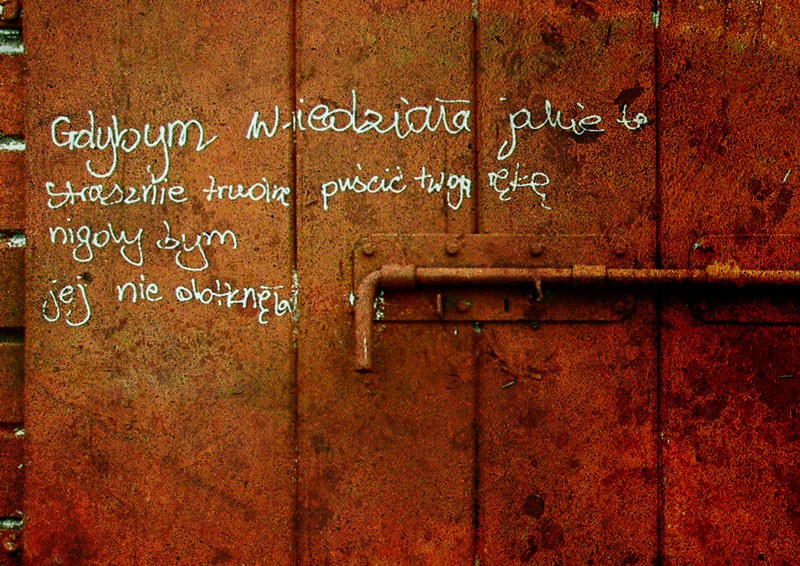 Gdybym wiedziała jakie to
strasznie trudne puścić twoją rękę
nigdy bym
jej nie dotknęła